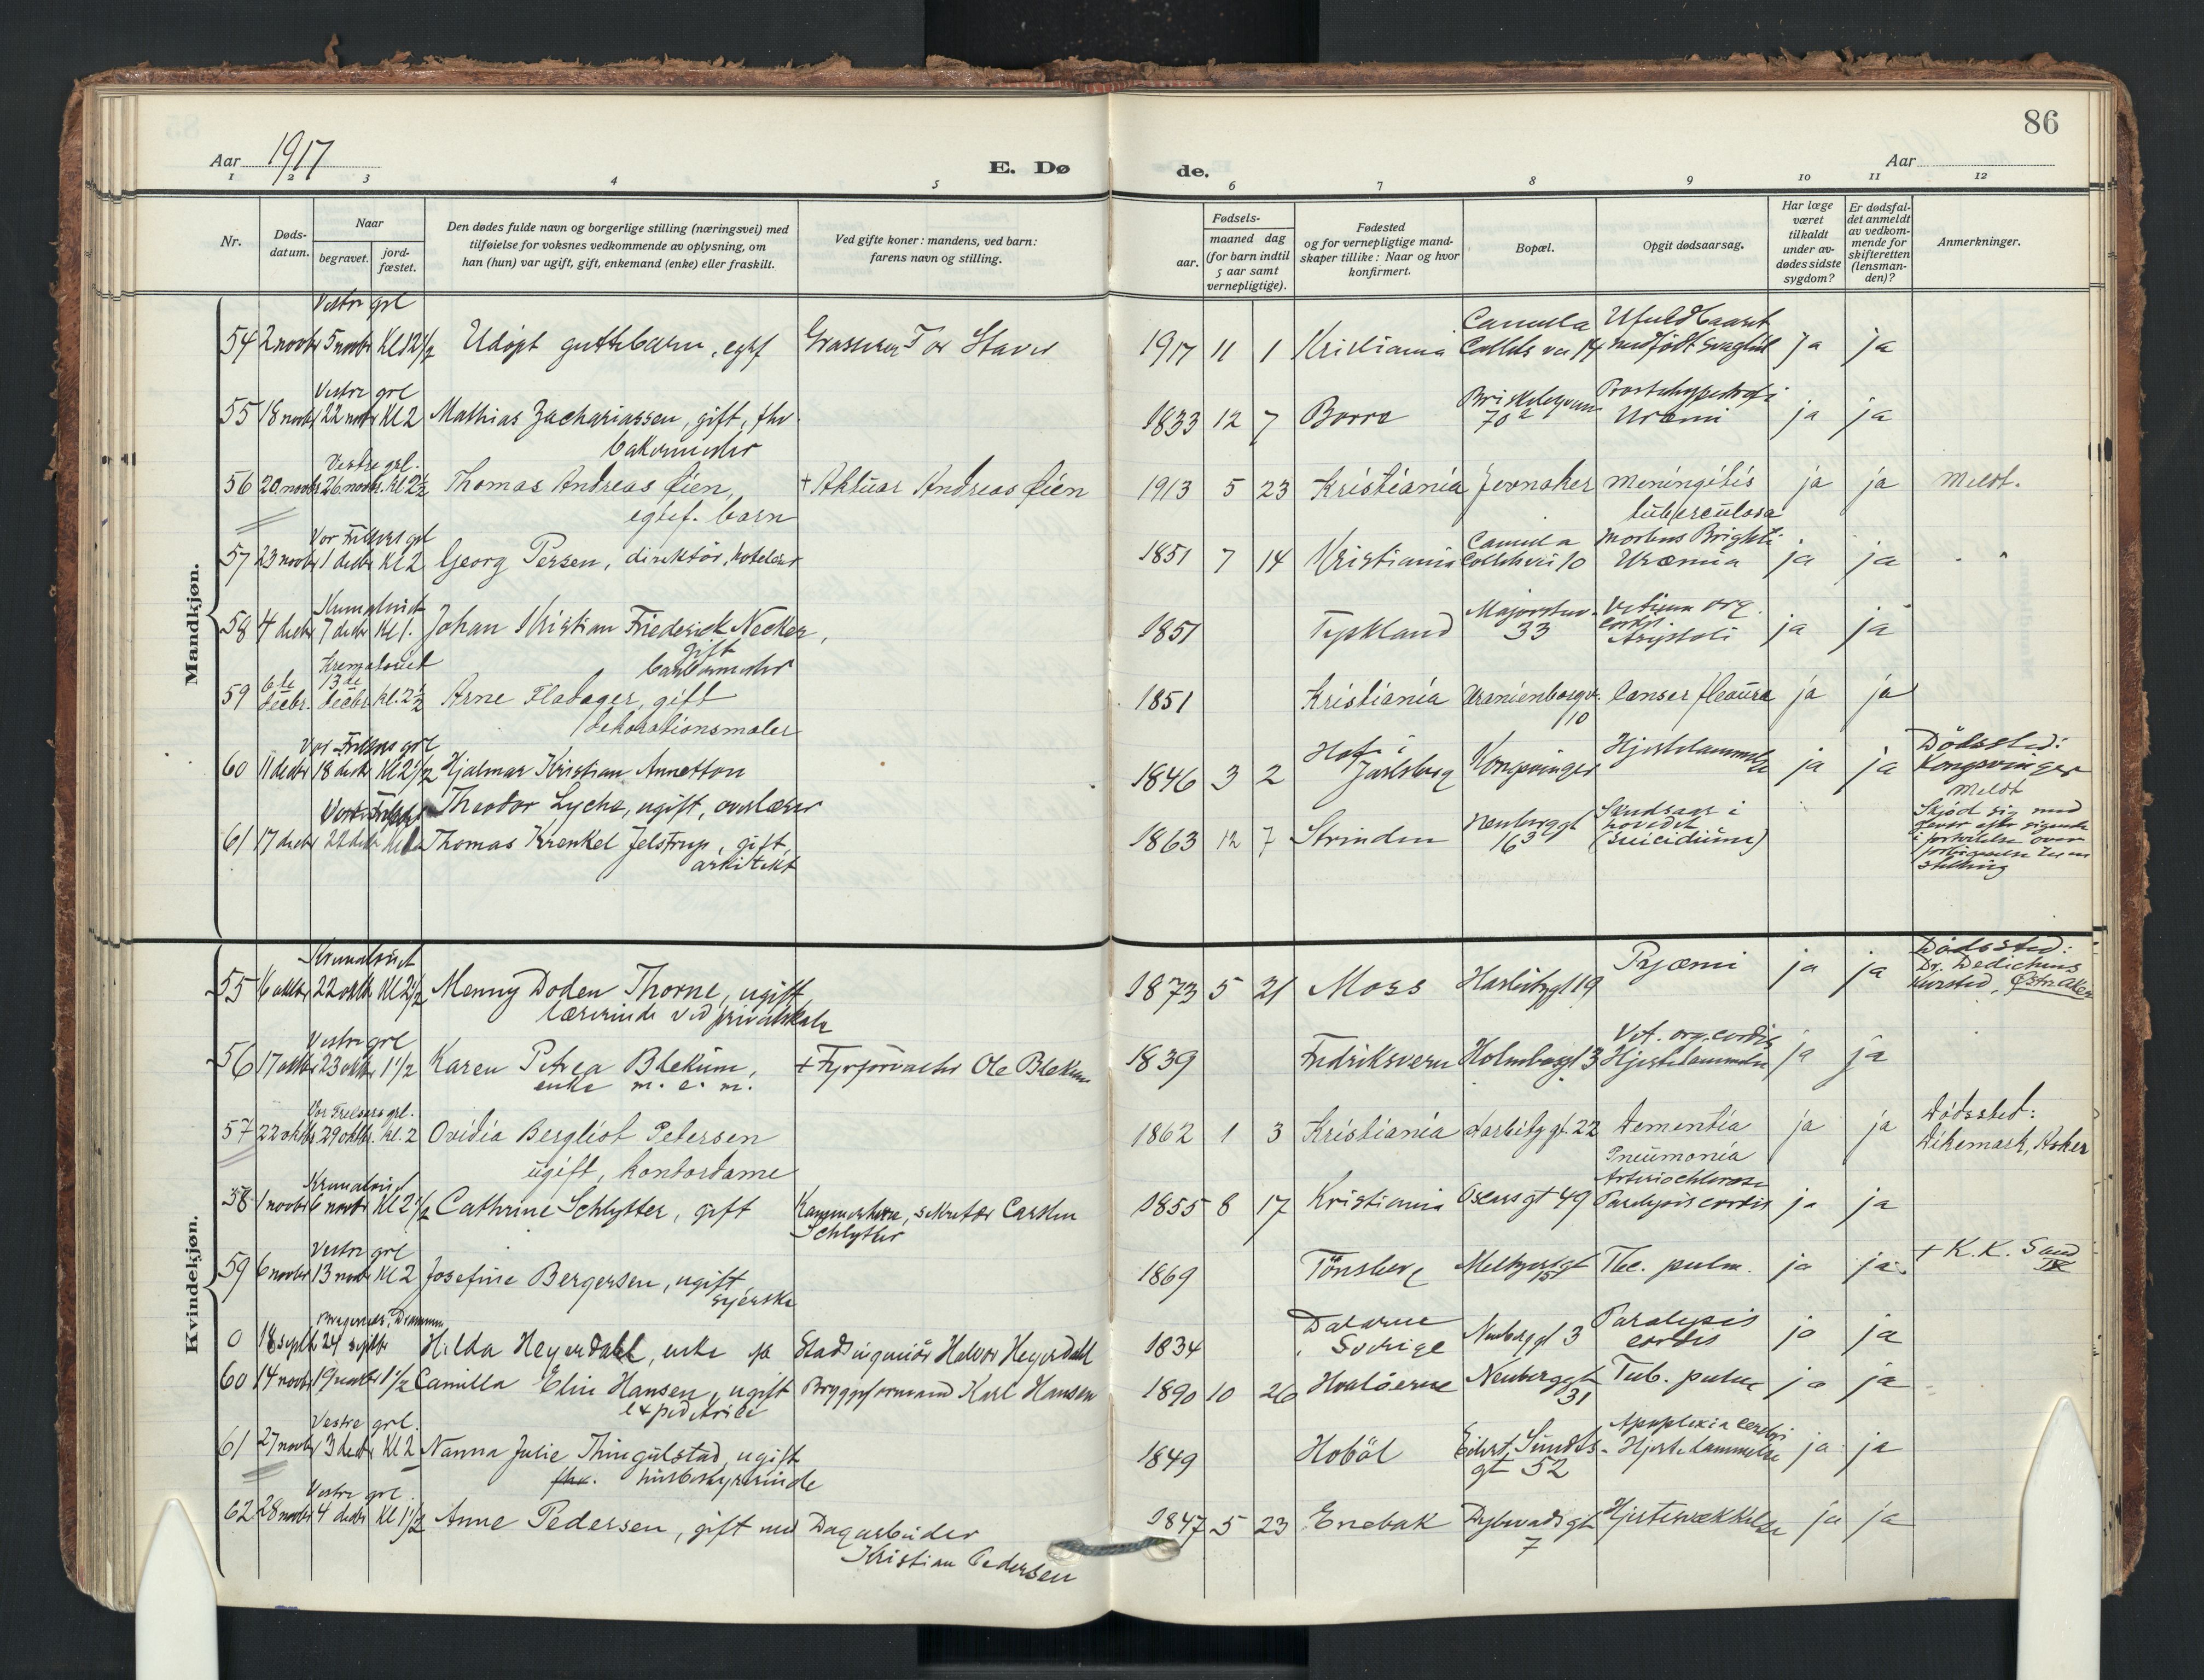 86
Aar 1917
E. Dø
de.
Aar
1 2 3 4 5 6 7 8 9 10 11 12
Nr.
Døds-
datum.
Naar
begravet.
jord-
fæstet.
Den dødes fulde navn og borgerlige stilling (næringsvei) med
tilføielse for voksnes vedkommende av oplysning, om
han (hun) var ugift, gift, enkemand (enke) eller fraskilt.
Ved gifte koner: mandens, ved barn:
farens navn og stilling.
Fødsels-
aar.
maaned dag
(for barn indtil
5 aar samt
vernepligtige).
Fødested
og for vernepligtige mand-
skaper tillike: Naar og hvor
konfirmert.
Bopæl.
Opgit dødsaarsag.
Har læge
været
tilkaldt
under av-
dødes sidste
sygdom?
Er dødsfal-
det anmeldt
av vedkom-
mende for
skifteretten
(lensman-
den)?
Anmerkninger.
Mandkjøn.
Vestre grl
54 2 novbr 5 novbr Kl 12 1/2 Udøpt guttebarn, egtf 1917 11 1 Kristiania ja ja
Vestre grl
55 18 novbr 22 novbr Kl 2 Mathias Zachariassen, gift, fhv. 1833 12 7 Borre 70 Uræmi ja ja
bakermester
Vestre grl.
56 20. novbr 26. novbr. Kl 2 1/2 Thomas Andreas Øien, + Aktuar Andreas Øien 1913 5 23 Kristiania Jevnaker Meningitis ja ja Meldt.
egtef. barn tuberculosa
Vor Frelsers grl
57 23 novbr 1 decbr Kl 2 Georg Persen, direktør, hoteleier 1851 7 14 Kristiania Camilla Collets vei 10 Morbus Brighti Uræmia ja ja
58 4 decbr 7 decbr Kl 1. Johan Kristian Friederick Necker, 1851 Tyskland Majorstuv. 33 Vitium org. cordis. ja ja
gift
Krematoriet
59 6te decbr. 13de decbr Kl. 2 1/2 Arne Fladager, gift 1851 Kristiania Uranienborgv. 10 ja ja
dekorationsmaler
Vor Frelsers grl
60 11 decbr 18 decbr Kl 2 1/2 Hjalmar Kristian Annetton 1846 3 2 Hof i Jarlsberg Kongsvinger Hjertelammelse ja ja Dødssted: Kongsvinger
Theodor Lyche, ugift, overlærer Meldt
61 17 decbr 22 decbr Thomas Krenkel Jelstrup, gift, 1863 12 7 Strinden Neuberggt 16 Skudsaar i hovedet (Suicidium)
arkitekt
Skjød sig med
stilling
Kvindekjøn.
Krematoriet
55 16 oktbr 22 oktbr Kl 2 1/2 Menny Doden Thorne, ugift, 1873 5 21 Moss Harbitzgt 19 Pyæmi ja ja Dødssted: Dr. Dedichens kursted, Østre Aker
lærerinde ved privatskole
Vestre grl
56 17 oktbr 23 oktbr 1 1/2 Karen Petrea Blekum, + Fyrforvalter Ole Blekum 1839 Fredriksvern Holmbogt 3 Vit. org. cordis Hjertelammelse ja ja
enke
Vor Frelsers grl.
57 22 oktbr 29 oktbr. kl. 2 Ovidia Bergliot Petersen 1862 1 3 Kristiania Harbitz gt. 22 Dementia ja ja Dødssted: Dikemark, Asker
ugift, kontordame Pneumonia
Krematoriet
58 1 novbr 6 novbr Kl 2 1/2 Cathrine Schlytter, gift Kammerherre, sekretær Carsten Schlytter 1855 8 17 Kristiania Oscarsgt 49 Paralysis cordis ja ja
Vestre grl
59 6 novbr 13 novbr Kl 2 Josefine Bergersen, ugift 1869 Tønsberg Meltzersgt 15 Tbc. pulm. ja ja + K. K. Sand
syerske
Bragernes, Drammen
0 18 septbr 24 septbr Hilda Heyerdahl, enke ea Stadsingeniør Halvor Heyerdahl 1834 Dalarne Sverige Neuberggt 3 Paralysis cordis ja ja
60 14 novbr 19 novbr 1 1/2 Camilla Elin Hansen, ugift Bryggeformand Karl Hansen 1890 10 26 Hvaløerne Neuberggt 31 Tub. pulm ja ja
expeditrice
Vestre grl.
61 27 novbr 3 decbr Kl 2 Nanna Julie Thingulstad, ugift 1849 Hobøl Eilert Sundts gt 52 Apoplexia cerebri Hjertelammelse ja ja
fhv. husbestyrerinde
Vestre grl.
62 28 novbr 4 decbr Kl 1 1/2 Anne Pedersen, gift med Dagarbeider 1847 5 23 Enebak Dybwadsgt 7 Hjertesvækkelse ja ja
Kristian Pedersen